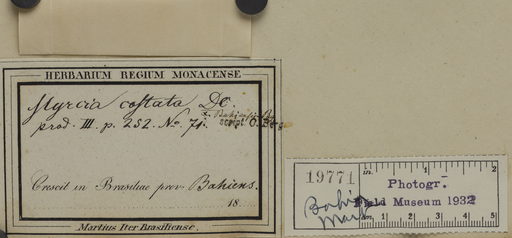 HERBARIUM REGIUM MONACENSE
Myrcia costata DC.
prod. III. p. 252. No. 71.
script. O. Berg
Crescit in Brasiliae prov. Bahiens.
18
Martius Iter Brasiliense.
19771
Photogr.
Field Museum 1932
Bahia
Mart